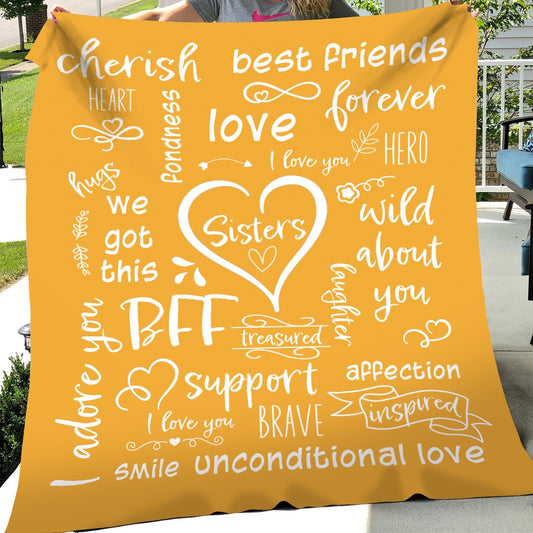 cherish
best friends
HEART
fondness
forever
love
I love you
HERO
hugs
we
got
this
Sisters
wild
about
you
laughter
BFF
treasured
I adore you
support
affection
I love you
BRAVE
inspired
smile unconditional love